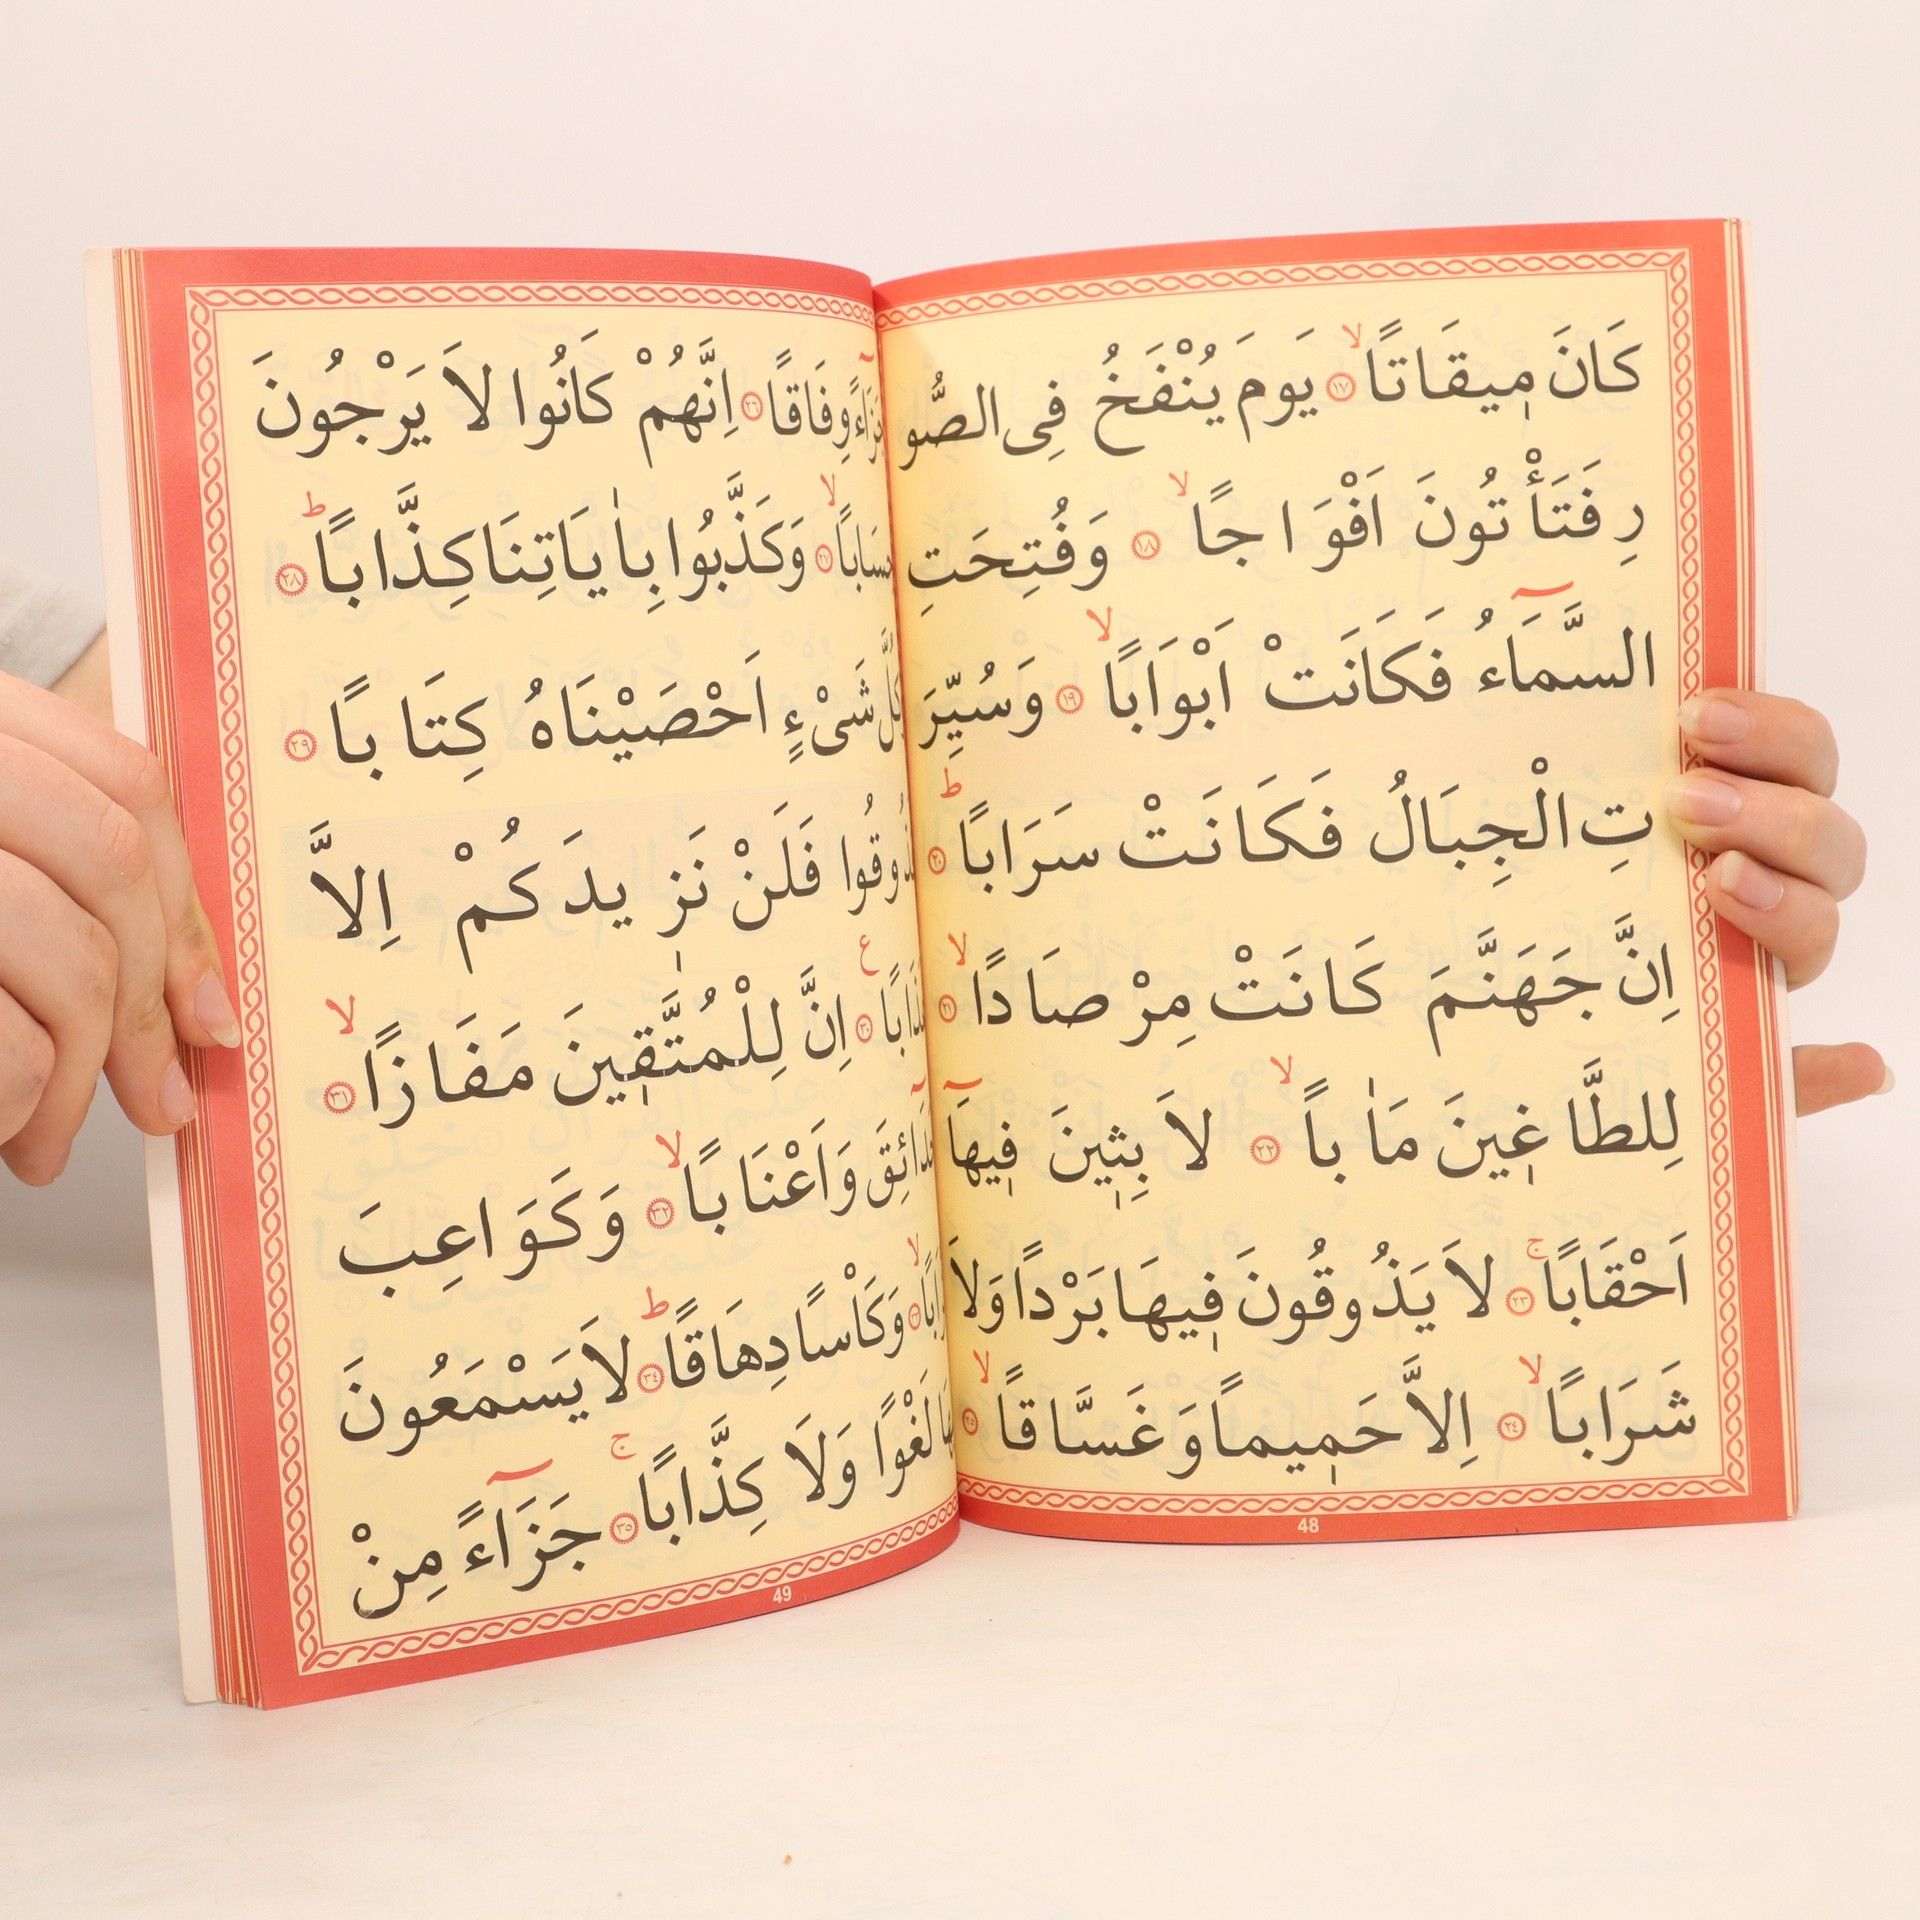 كَانَ مٖيقَاتًاۙ ﴿١٧﴾ يَوْمَ يُنْفَخُ فِى الصُّو
رِ فَتَأْتُونَ اَفْوَاجًاۙ ﴿١٨﴾ وَفُتِحَتِ
السَّمَآءُ فَكَانَتْ اَبْوَابًاۙ ﴿١٩﴾ وَسُيِّرَ
تِ الْجِبَالُ فَكَانَتْ سَرَابًاؕ ﴿٢٠﴾
اِنَّ جَهَنَّمَ كَانَتْ مِرْصَادًاۙ ﴿٢١﴾
لِلطَّاغٖينَ مَاٰباًۙ ﴿٢٢﴾ لاَبِثٖينَ فٖيهَآ
اَحْقَابًاۚ ﴿٢٣﴾ لاَيَذُوقُونَ فٖيهَا بَرْدًا وَلاَ
شَرَابًاۙ ﴿٢٤﴾ اِلاَّ حَمٖيماً وَغَسَّاقًاۙ ﴿٢٥﴾
48
وِفَاقًا ﴿٢٦﴾ اِنَّهُمْ كَانُوا لاَ يَرْجُونَ
حِسَابًاۙ ﴿٢٧﴾ وَكَذَّبُوا بِاٰيَاتِنَا كِذَّابًاؕ ﴿٢٨﴾
شَىْءٍ اَحْصَيْنَاهُ كِتَابًا ﴿٢٩﴾
فَلَنْ نَزٖيدَكُمْ اِلاَّ
عَذَابًا ﴿٣٠﴾ ع اِنَّ لِلْمُتَّقٖينَ مَفَازًاۙ ﴿٣١﴾
حَدَآئِقَ وَاَعْنَابًاۙ ﴿٣٢﴾ وَكَوَاعِبَ
وَكَاْسًا دِهَاقًاؕ ﴿٣٤﴾ لاَيَسْمَعُونَ
لَغْوًا وَلاَ كِذَّابًاۚ ﴿٣٥﴾ جَزَآءً مِنْ
49